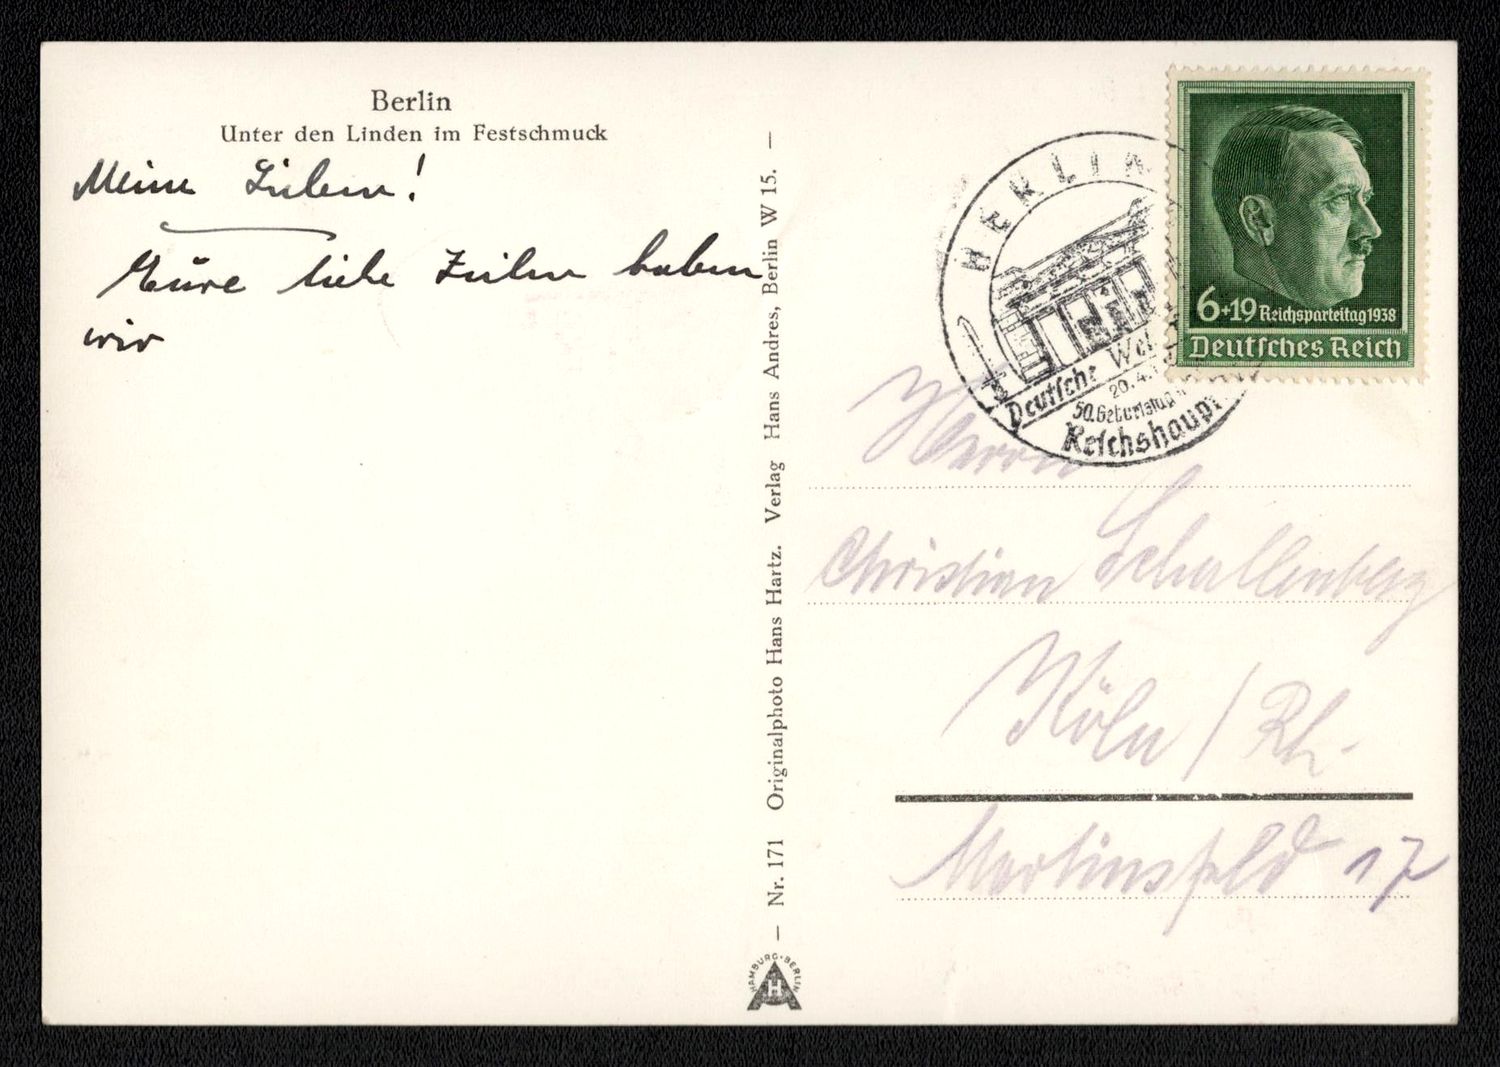 Berlin
Unter den Linden im Festschmuck
Meine Lieben!
Eure liebe Zeilen haben
wir
Nr. 171 Originalphoto Hans Hartz. Verlag Hans Andres, Berlin W 15.
HAMBURG-BERLIN
H
BERLIN
Deutsche
20.4.
50. Geburtstag
6+19 Reichsparteitag 1938
Deutsches Reich
Herrn
Christian Schallenberg
Köln / Rh.
Martinsfeld 17